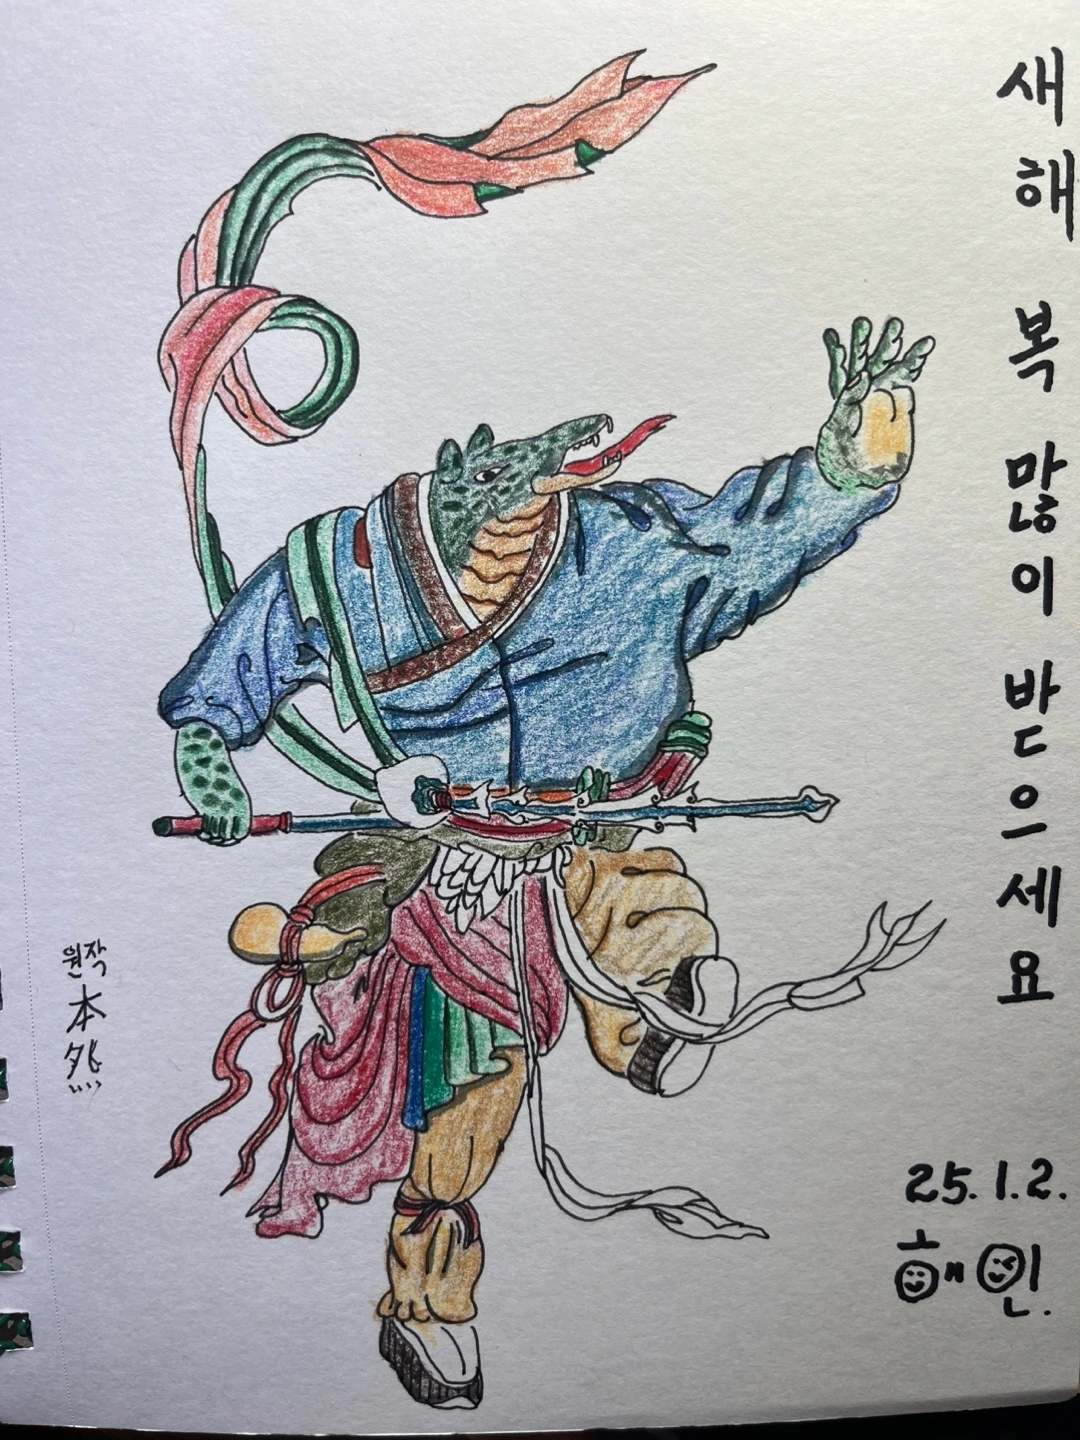 새해 복 많이 받으세요
원작
本然
25.1.2.
해인.